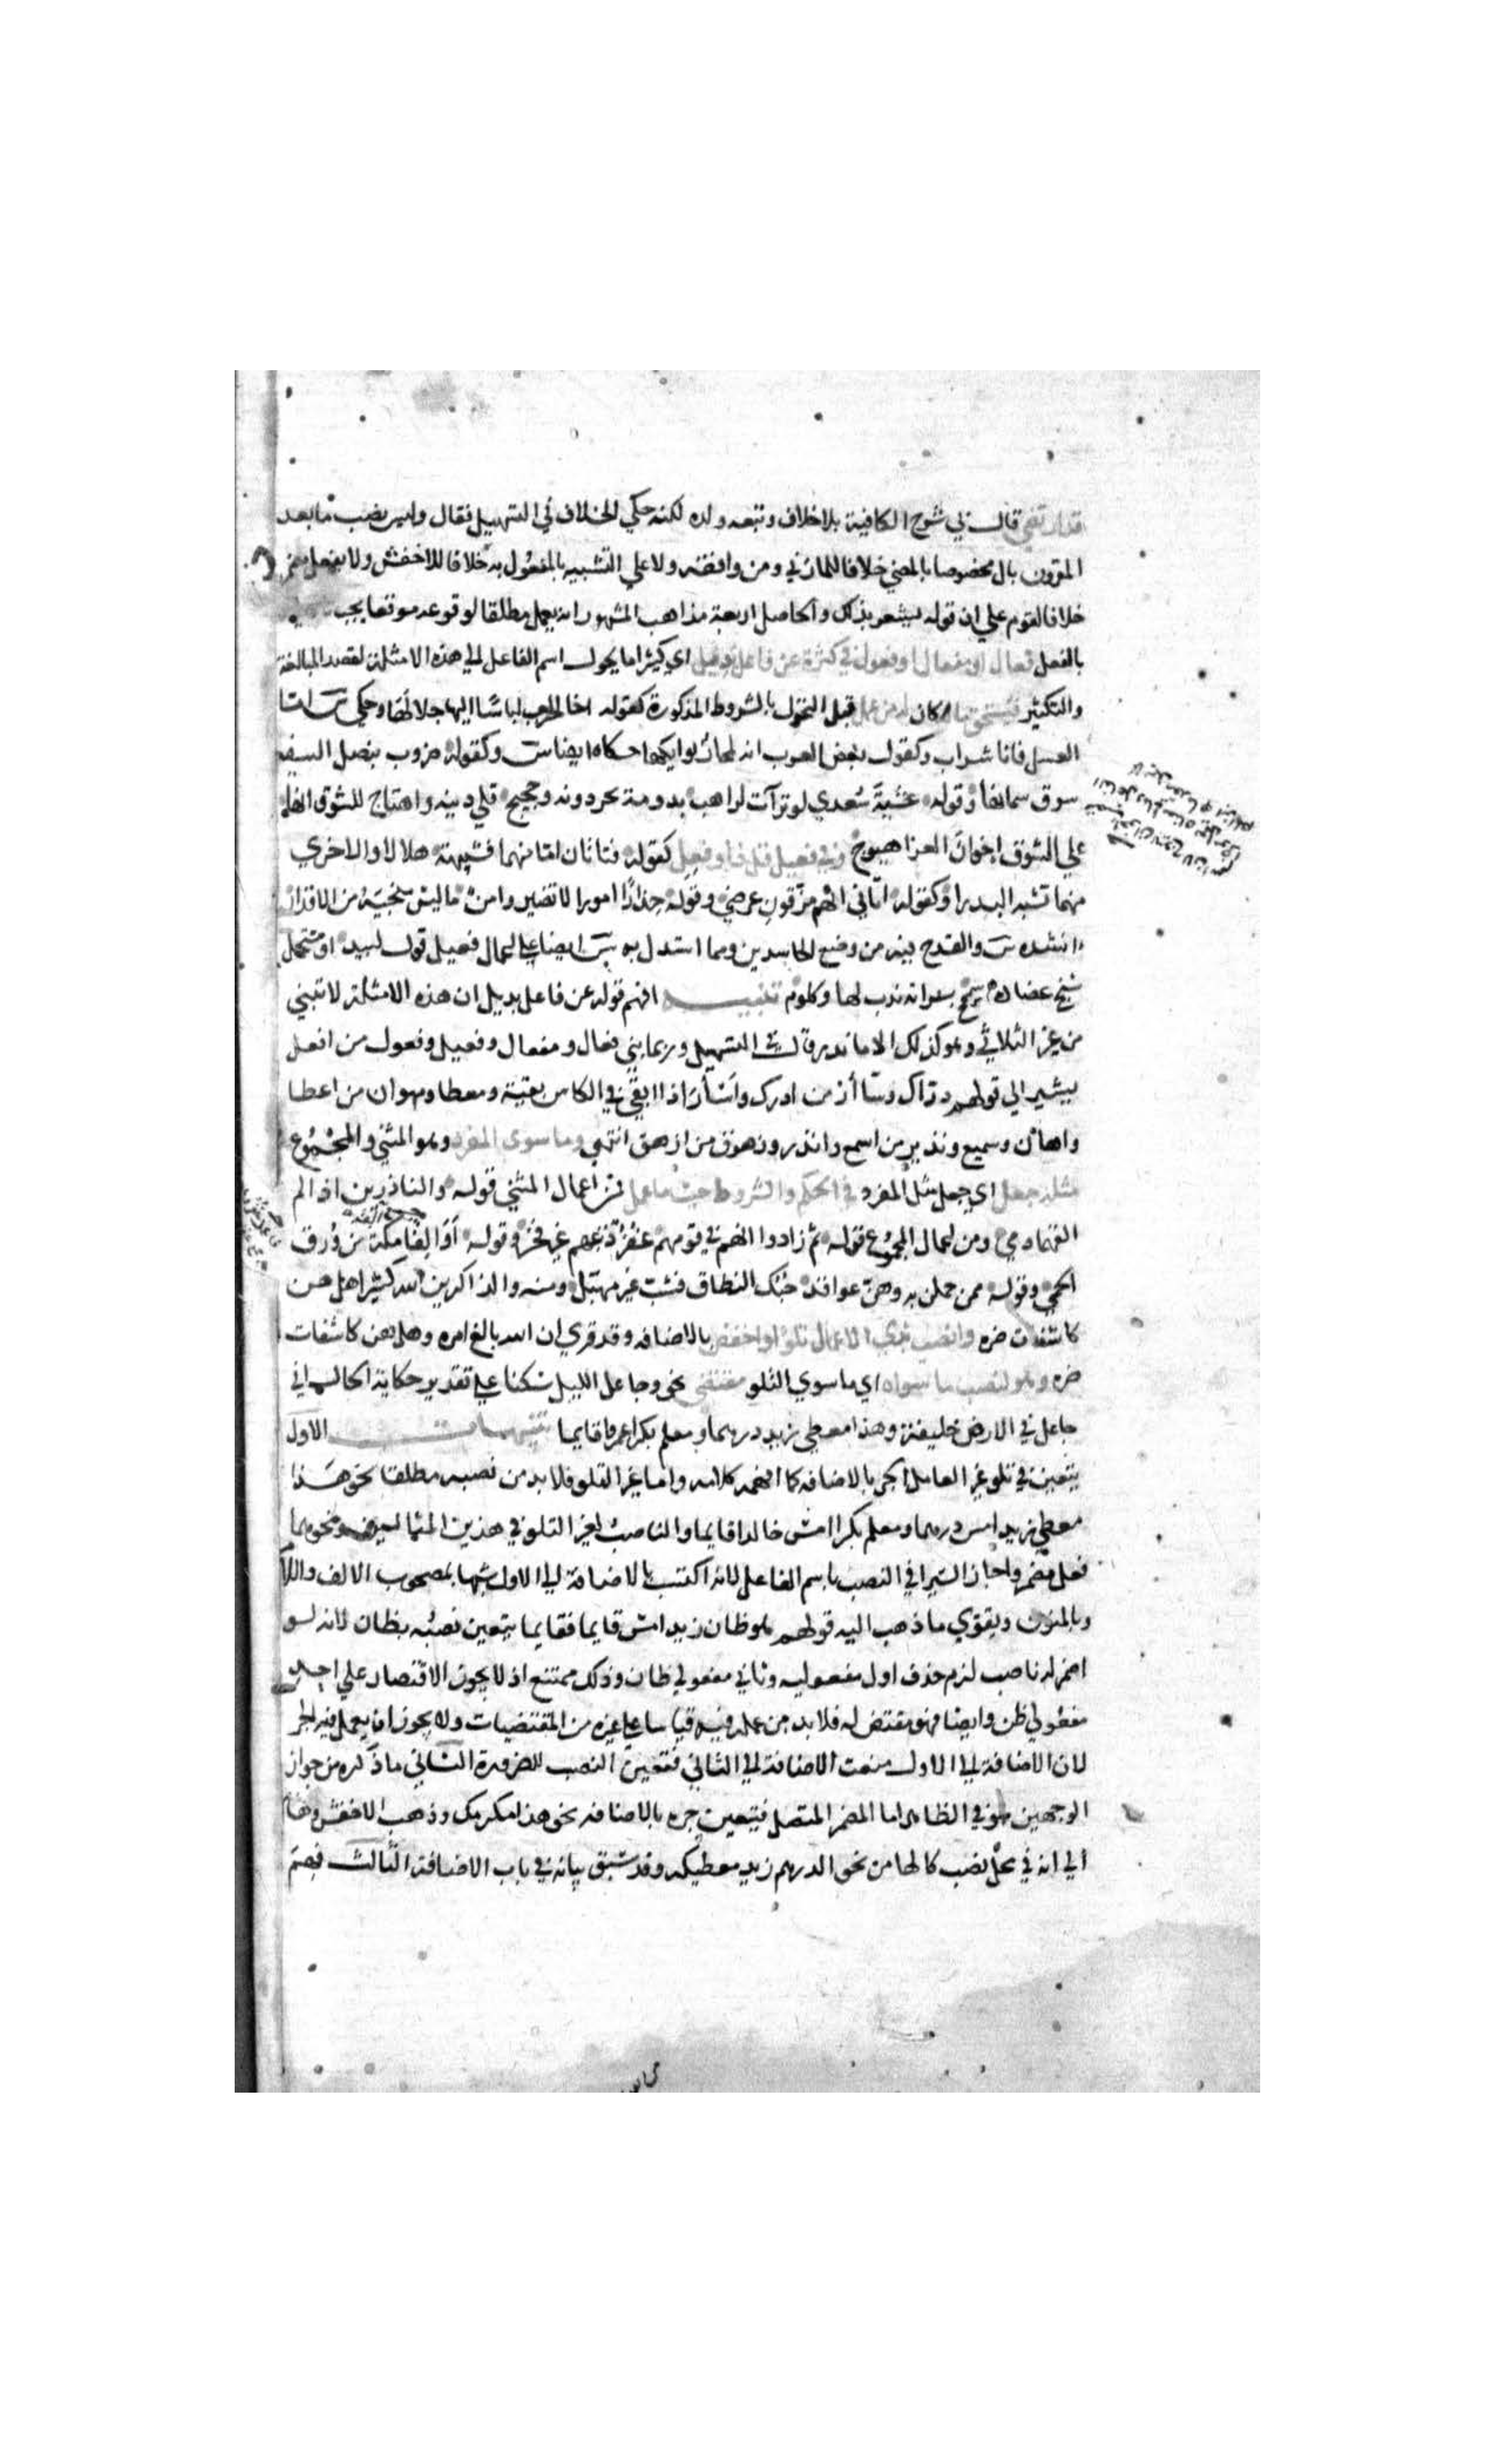 قد ارتضي قال في شرح الكافية بلا خلاف وتبعه ولده لكنه حكي الخلاف في التسهيل فقال وليس نصب ما بعد
المقرون بال مخصوصا بالمضي خلافا للمازني ومن وافقه ولا علي التشبيه بالمفعول به خلافا للاخفش ولا بفعل مضمر
خلافا لقوم علي ان قوله يشعر بذلك والحاصل اربعة مذاهب المشهور انه يعمل مطلقا لوقوعه موقعا يجب
بالفعل فعال او مفعال او فعول في كثرة عن فاعل بديل اي كثيرا ما يحول اسم الفاعل الي هذه الامثلة لقصد المبالغة
والتكثير فيستحق ما كان له من عمل قبل التحول بالشروط المذكورة كقوله اخا الحرب لباسا اليها جلالها وحكي س اما
العسل فانا شراب وكقول بعض العرب انه لمنحار بوايكها حكاه ايضا س وكقوله ضروب بنصل السيف
سوق سمانها وقوله عشية سعدي لو تراءت لراهب بدومة تجر دونه وحجيج قلي دينه واهتاج للشوق انها
علي الشوق اخوان العزا هيوج وفي فعيل قل ذا وفعل كقوله فتاتان اما منهما فشبيهة هلالا والاخري
منهما تشبه البدرا وكقوله اتاني انهم مزقون عرضي وقوله حذر امورا لا تضير وامن ما ليس منجيه من الاقدار
انشده س والقدح فيه من وضع الحاسدين ومما استدل به س ايضا علي اعمال فعيل قول لبيد او مسحل
شنج عضادة سمحج بسراته ندب لها وكلوم تنبيه افهم قوله عن فاعل بديل ان هذه الامثلة لا تبني
من غير الثلاثي وهو كذلك الا ما ندر قال في التسهيل وربما بني فعال ومفعال وفعيل وفعول من افعل
يشير الي قولهم دراك وسأار من ادرك واسأر اذا ابقي في الكاس بقية ومعطا ومهوان من اعطا
واهان وسميع ونذير من اسمع وانذر وزهوق من ازهق انتهي وما سوي المفرد وهو المثني والمجموع
مثله جعل اي جعل مثل المفرد في الحكم والشروط حيث ما عمل فمن اعمال المثني قوله والناذرين اذا لم
القهما دمي ومن اعمال المجموع قوله ثم زادوا انهم في قومهم غفر ذنبهم غير فخر وقوله اوالفا مكة من ورق
الحمي وقوله ممن حملن به وهن عواقد حبك النطاق فشب غير مهبل ومنه والذاكرين الله كثيرا هل هن
كاشفات ضره وانصب بذي الاعمال تلوا واخفض بالاضافه وقد قري ان الله بالغ امره وهل هن كاشفات
ضره وهو لنصب ما سواه اي ما سوي التلو مقتضي نحو وجاعل الليل سكنا علي تقدير حكاية الحال اني
جاعل في الارض خليفة وهذا معطي زيد درهما ومعلم بكر عمرا قايما تنبيهات الاول
يتعين في تلو غير العامل الجر بالاضافه كما افهمه كلامه واما غير التلو فلا بد من نصبه مطلقا نحو هذا
معطي زيد امس درهما ومعلم بكر امس خالدا قايما والناصب لغير التلو في هذين المثالين ونحوهما
فعل مضمر واجاز السيرافي النصب باسم الفاعل لانه اكتسب بالاضافة الي الاول شبها بمصحوب الالف واللام
وبالمنون ويقوي ما ذهب اليه قولهم هو ظان زيد امس قايما فقايما يتعين نصبه بظان لانه لو
اضمر له ناصب لزم حذف اول مفعوليه وثاني مفعولي ظان وذلك ممتنع اذ لا يجوز الاقتصار علي احد
مفعولي ظن وايضا فهو مقتض له فلا بد من عمله فيه قياسا علي غيره من المقتضيات ولا يجوز ان يعمل فيه الجر
لان الاضافة الي الاول منعت الاضافة الي الثاني فتعين النصب للضرورة الثاني ما ذكره من جواز
الوجهين هو في الظاهر اما المضمر المتصل فيتعين جره بالاضافه نحو هذا مكرمك وذهب الاخفش وهشام
الي انه في محل نصب كالها من نحو الدرهم زيد معطيكه وقد سبق بيانه في باب الاضافة الثالث فهم